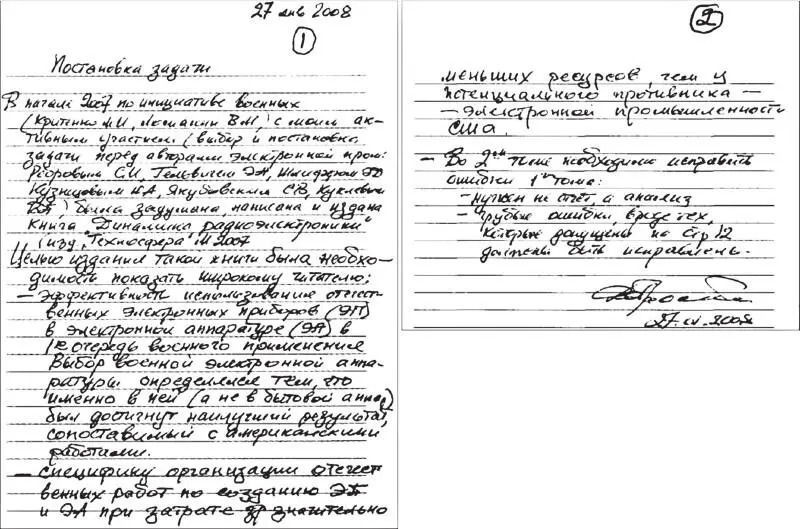 27 янв 2008
1
Постановка задачи
В начале 2007 по инициативе военных
(Критенко М.И, Ломакин В.М, с моим ак-
тивным участием (выбор и постановка
задачи перед авторами электронной пром:
Ребровым С.И, Гелевичем Э.А, Шмидтом
Кузнецовым И.А, Якубовским С.В,
была задумана, написана и издана
книга "Динамика радиоэлектроники"
(изд. "Техносфера" М 2007
Целью издания такой книги была необхо-
димость показать широкому читателю:
— эффективность использования отечест-
венных электронных приборов (ЭП)
в электронной аппаратуре (ЭА) в
1ю очередь военного применения
Выбор военной электронной аппа-
ратуры определялся тем, что
именно в ней (а не в бытовой аппар)
был достигнут наилучший результат,
сопоставимый с американскими
работами.
— специфику организации отечест
венных работ по созданию ЭП
и ЭА при затрате значительно
2
меньших ресурсов, чем у
потенциального противника —
— электронной промышленности
США.
— Во 2ом томе необходимо исправить
ошибки 1го тома:
— нужен не отчет, а анализ
— грубые ошибки, вроде тех,
которые допущены на стр 12
должны быть исправлены.
2008